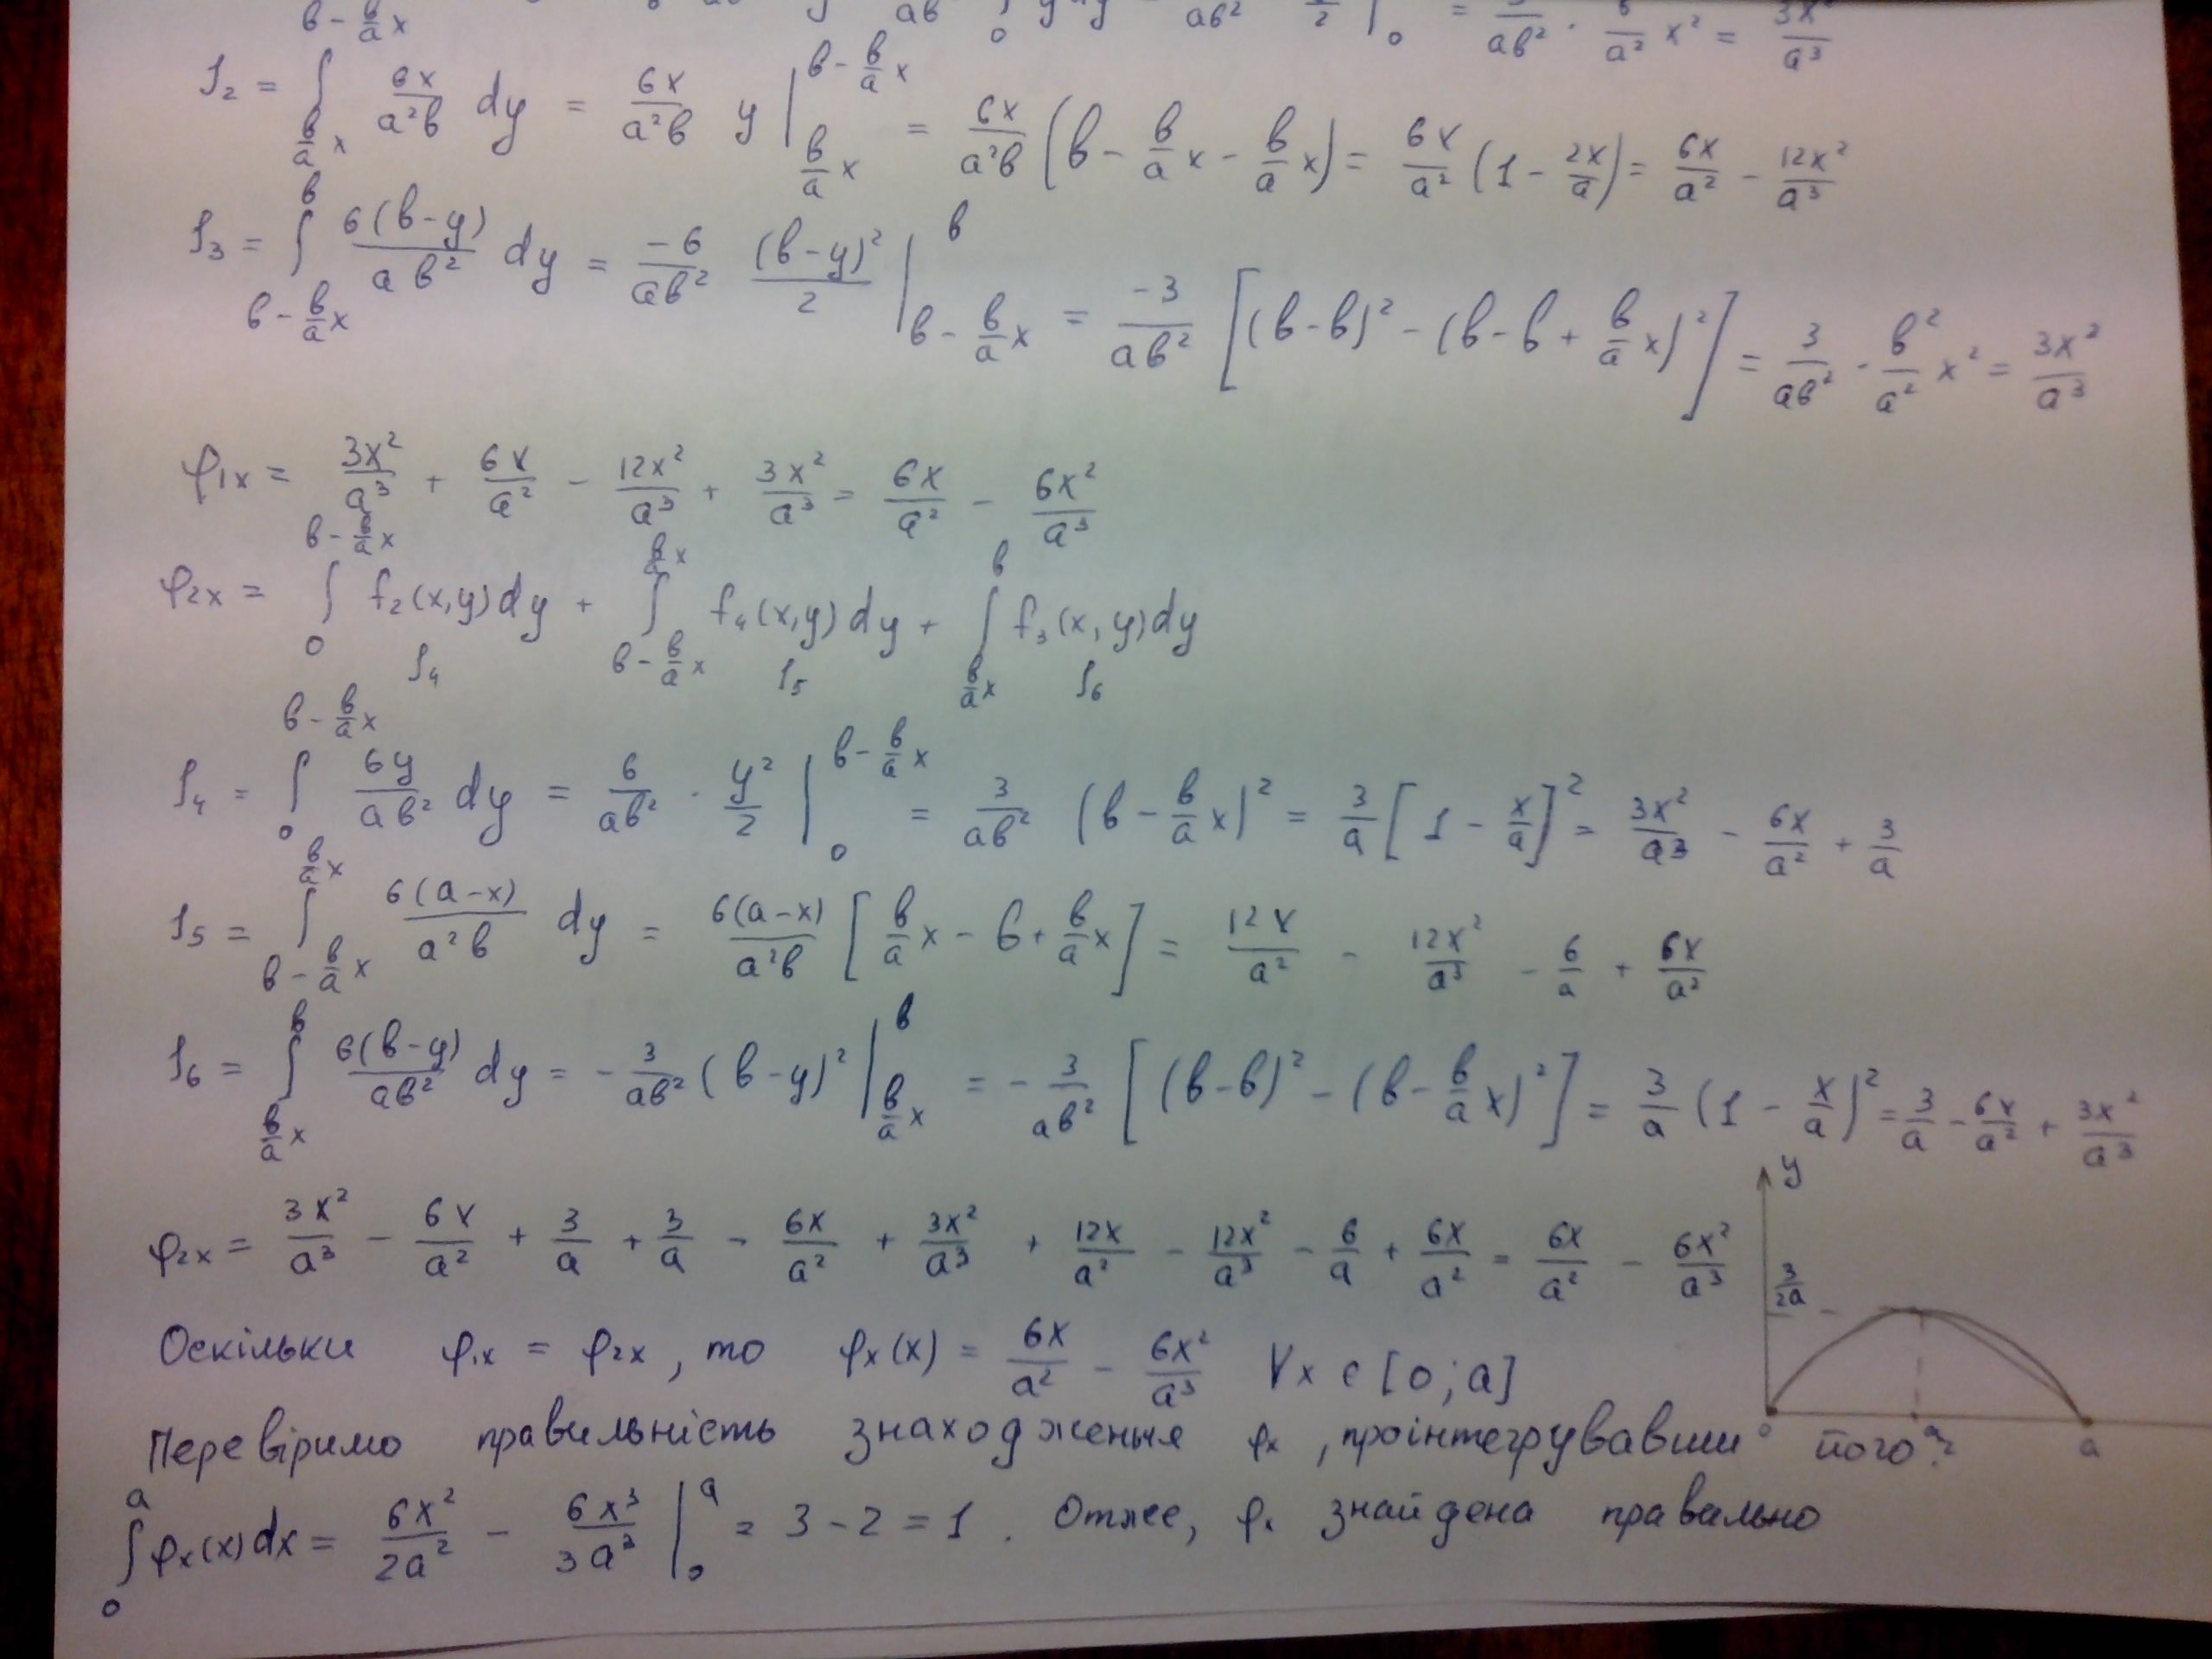 = 3/ab² · b²/a² x² = 3x²/a³
I₂ = ∫_{b/a x}^{b - b/a x} 6x/a²b dy = 6x/a²b y |_{b/a x}^{b - b/a x} = 6x/a²b (b - b/a x - b/a x) = 6x/a² (1 - 2x/a) = 6x/a² - 12x²/a³
I₃ = ∫_{b - b/a x}^{b} 6(b-y)/ab² dy = -6/ab² (b-y)²/2 |_{b - b/a x}^{b} = -3/ab² [(b-b)² - (b-b + b/a x)²] = 3/ab² · b²/a² x² = 3x²/a³
φ₁ₓ = 3x²/a³ + 6x/a² - 12x²/a³ + 3x²/a³ = 6x/a² - 6x²/a³
φ₂ₓ = ∫_{0}^{b - b/a x} f₂(x,y)dy + ∫_{b - b/a x}^{b/a x} f₄(x,y)dy + ∫_{b/a x}^{b} f₃(x,y)dy
I₄ I₅ I₆
I₄ = ∫_{0}^{b - b/a x} 6y/ab² dy = 6/ab² · y²/2 |_{0}^{b - b/a x} = 3/ab² (b - b/a x)² = 3/a [1 - x/a]² = 3x²/a³ - 6x/a² + 3/a
I₅ = ∫_{b - b/a x}^{b/a x} 6(a-x)/a²b dy = 6(a-x)/a²b [b/a x - b + b/a x] = 12x/a² - 12x²/a³ - 6/a + 6x/a²
I₆ = ∫_{b/a x}^{b} 6(b-y)/ab² dy = -3/ab² (b-y)² |_{b/a x}^{b} = -3/ab² [(b-b)² - (b - b/a x)²] = 3/a (1 - x/a)² = 3/a - 6x/a² + 3x²/a³
φ₂ₓ = 3x²/a³ - 6x/a² + 3/a + 3/a - 6x/a² + 3x²/a³ + 12x/a² - 12x²/a³ - 6/a + 6x/a² = 6x/a² - 6x²/a³
y
3/2a
0 a/2 a
Оскільки φ₁ₓ = φ₂ₓ, то φₓ(x) = 6x/a² - 6x²/a³ ∀x ∈ [0;a]
Перевіримо правильність знаходження φₓ, проінтегрувавши його:
∫_{0}^{a} φₓ(x)dx = 6x²/2a² - 6x³/3a³ |_{0}^{a} = 3 - 2 = 1. Отже, φₓ знайдена правильно